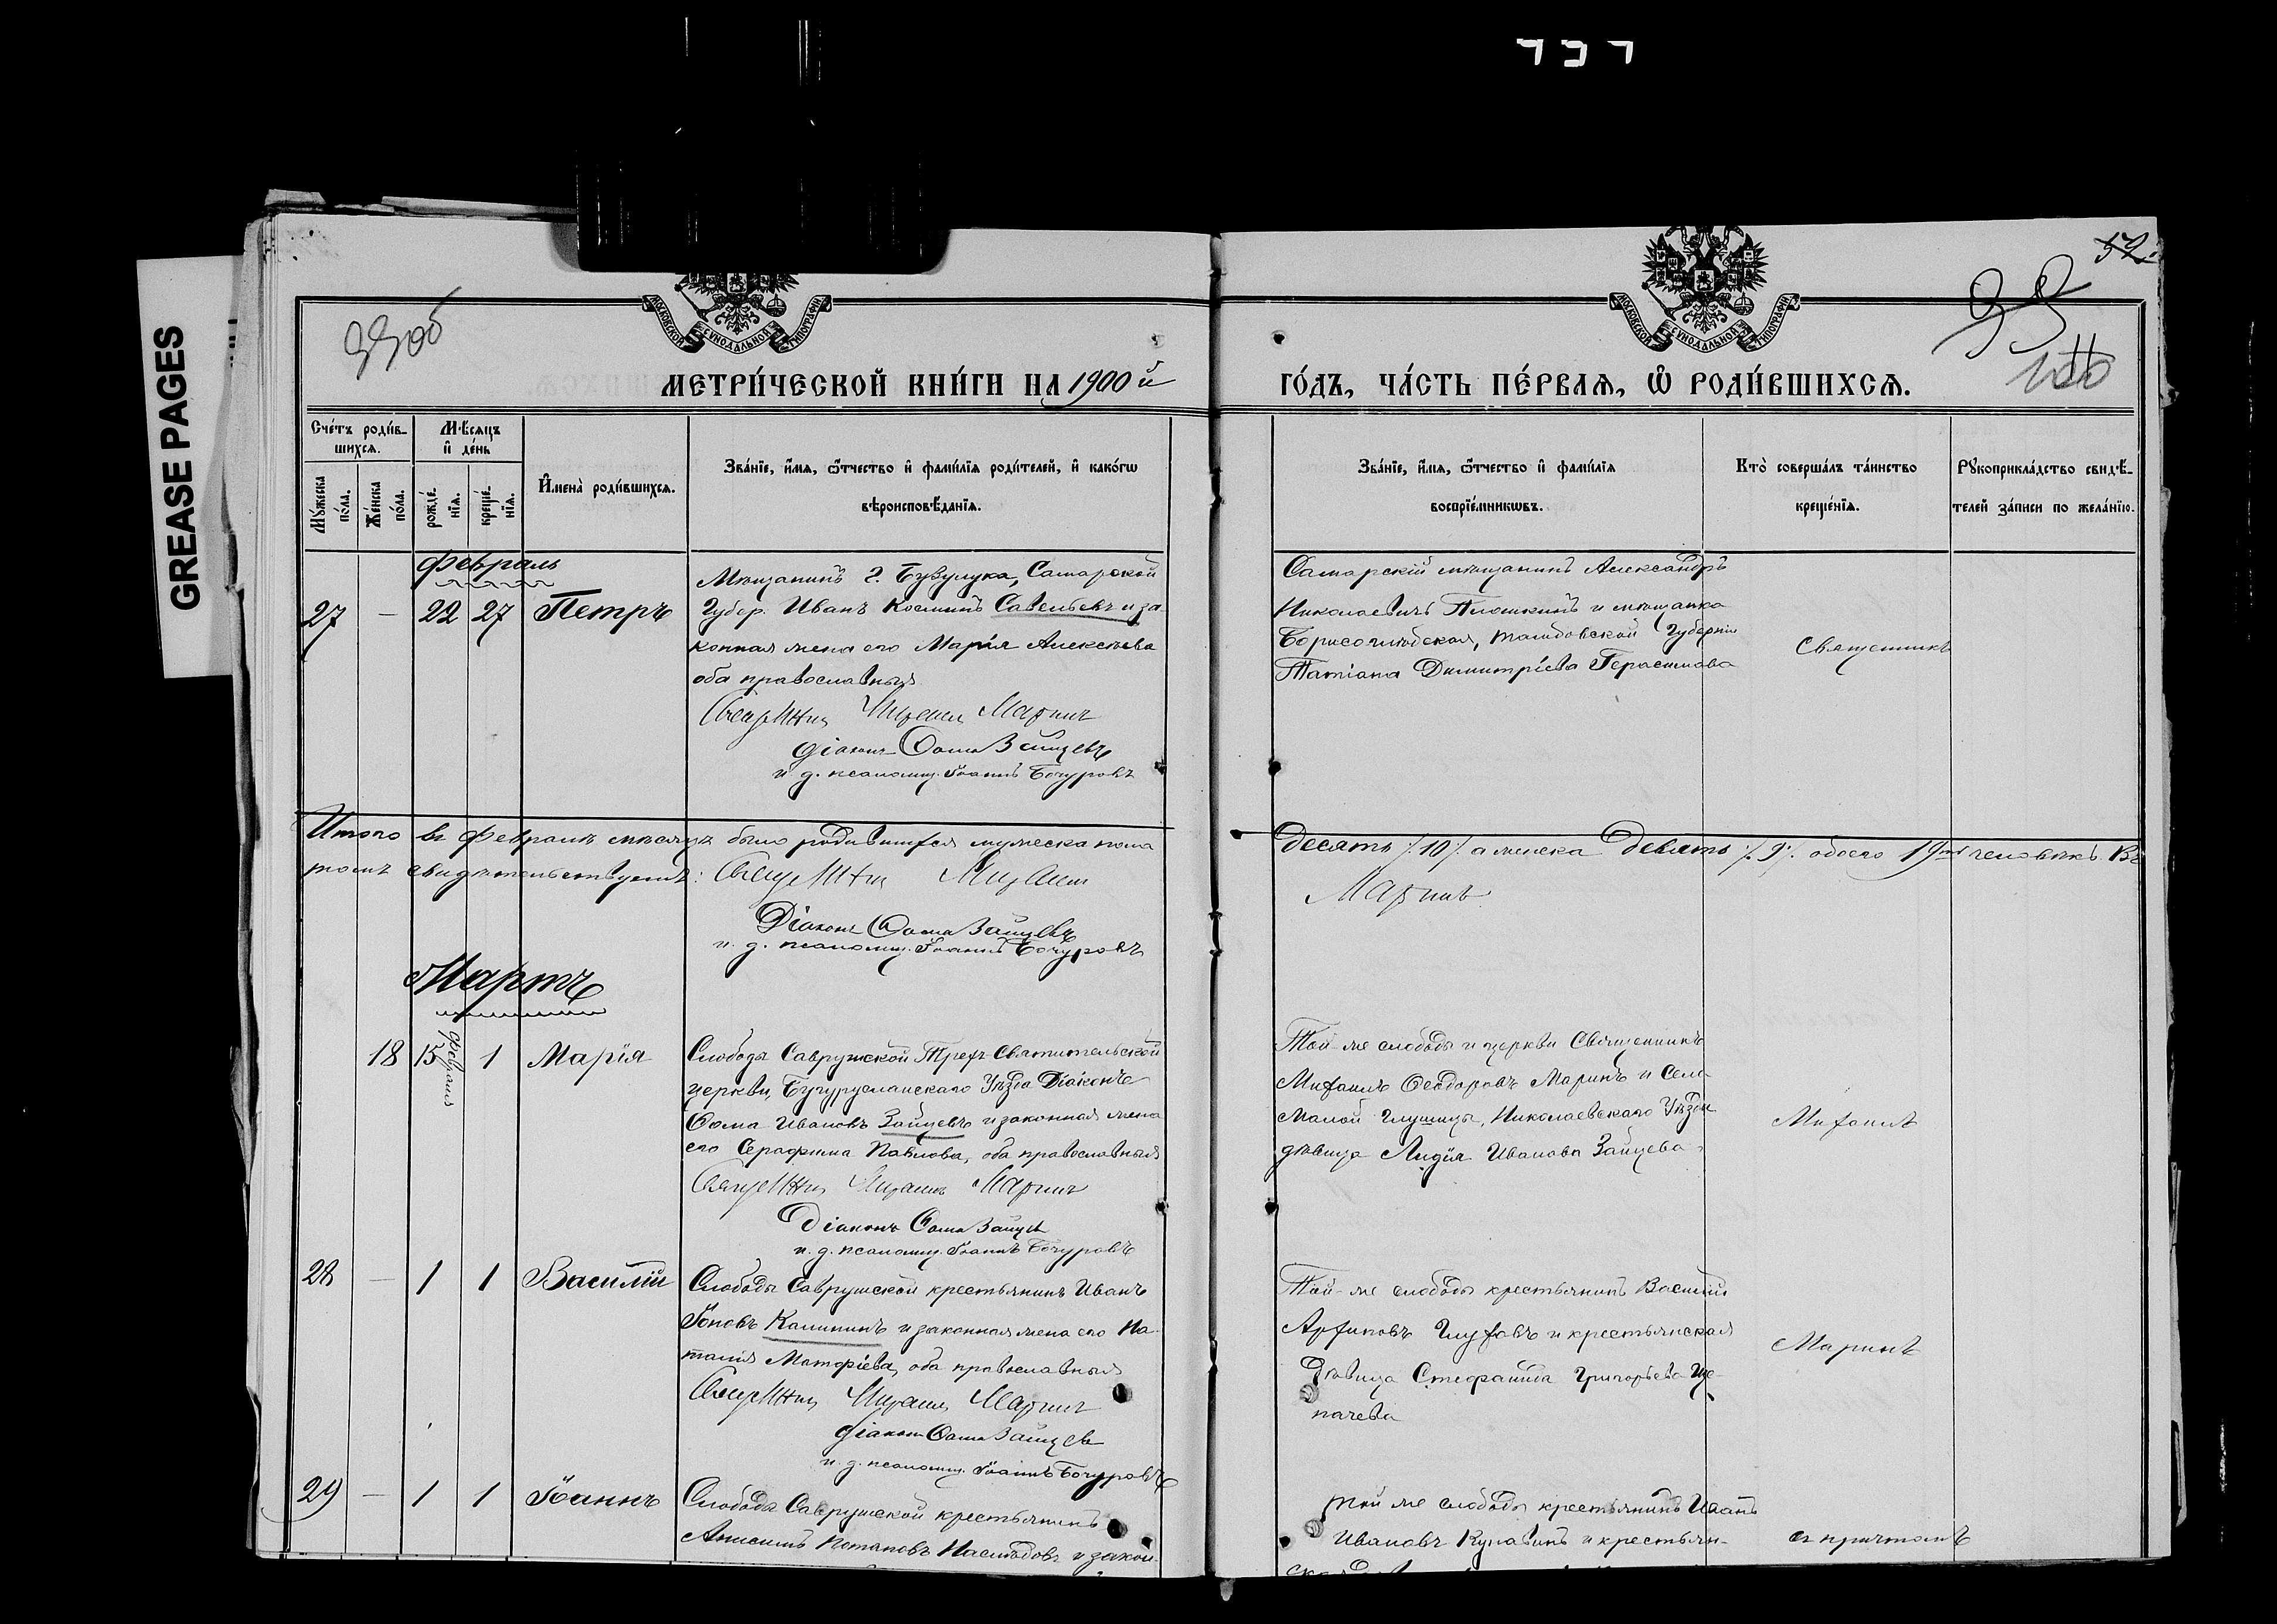 GREASE PAGES
52.
39об
39
МОСКОВСКОЙ СѴНОДАЛЬНОЙ ТИПОГРАФІИ
МОСКОВСКОЙ СѴНОДАЛЬНОЙ ТИПОГРАФІИ
МЕТРИ́ЧЕСКОЙ КНИ́ГИ НА 1900й
ГО́ДЪ, ЧА́СТЬ ПЕ́РВАЯ, Ѡ҆ РОДИ́ВШИХСЯ.
Сче́тъ роди́в-
шихся.
Мѣ́сяцъ
и҆ де́нь
Мꙋ́жеска по́ла.
Же́нска по́ла.
рожде́-нїя.
креще́-нїя.
И҆мена̀ роди́вшихся.
Зва́нїе, и҆́мя, ѻ҆́тчество и҆ фами́лїя роди́телей, и҆ како́гѡ
вѣроисповѣ́данїя.
Зва́нїе, и҆́мя, ѻ҆́тчество и҆ фами́лїя
воспрїе́мникѡвъ.
Кто̀ соверша́лъ та́инство
креще́нїя.
Рꙋкоприкла́дство свидѣ́-
телей за́писи по жела́нїю.
Февраль
27 — 22 27 Петръ
Мѣщанинъ г. Бузулука, Самарской
Губер. Иванъ Косминъ Савельевъ и за-
конная жена его Марія Алексѣева
оба православныя
Священникъ Михаилъ Маринъ
діаконъ Ѳома Зайцевъ
и. д. псаломщ. Іоаннъ Бочуровъ
Самарскій мѣщанинъ Александръ
Николаевичъ Плошкинъ и мѣщанка
Борисоглѣбская, Тамбовской Губерніи
Татіана Димитріева Герасимова
Священникъ
Итого въ Февралѣ мѣсяцѣ было родившихся мужеска пола
десять /.10/. а женска девять /.9/. обоего 19ть человѣкъ. Въ
томъ свидѣтельствуемъ: Священникъ Михаилъ
Маринъ
Діаконъ Ѳома Зайцевъ
и. д. псаломщ. Іоаннъ Бочуровъ
Мартъ
18 15 февраля 1 Марія
Слободы Саврушской Трехъ-Святительской
церкви, Бугурусланскаго Уѣзда Діаконъ
Ѳома Ивановъ Зайцевъ и законная жена
его Серафима Павлова, оба православныя
Священникъ Михаилъ Маринъ
Діаконъ Ѳома Зайцевъ
и. д. псаломщ. Іоаннъ Бочуровъ
Той-же слободы и церкви Священникъ
Михаилъ Ѳеодоровъ Маринъ и села
Малой Глушицы, Николаевскаго Уѣзда
дѣвица Лидія Иванова Зайцева
Михаилъ
28 — 1 1 Василій
Слободы Саврушской крестьянинъ Иванъ
Іоновъ Калининъ и законная жена его На-
талія Матфіева, оба православныя
Священникъ Михаилъ Маринъ
діаконъ Ѳома Зайцевъ
и. д. псаломщ. Іоаннъ Бочуровъ
Той-же слободы крестьянинъ Василій
Архиповъ Глуховъ и крестьянская
дѣвица Стефанида Григорьева Ще-
пачева
Маринъ
29 — 1 1 Іоаннъ
Слободы Саврушской крестьянинъ
Анисимъ Потаповъ Наслѣдовъ и закон-
Той же слободы крестьянинъ Иванъ
Ивановъ Кулавинъ и крестьян-
съ причтомъ